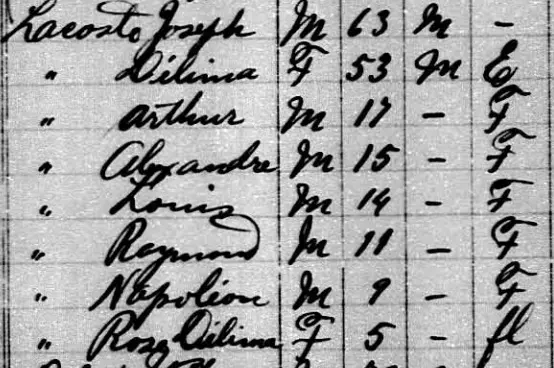 Lacoste Joseph M 63 M -
" Délima F 53 M E
" Arthur M 17 - F
" Alexandre M 15 - F
" Louis M 14 - F
" Raymond M 11 - F
" Napoléon M 9 - F
" Rose Délima F 5 - fl